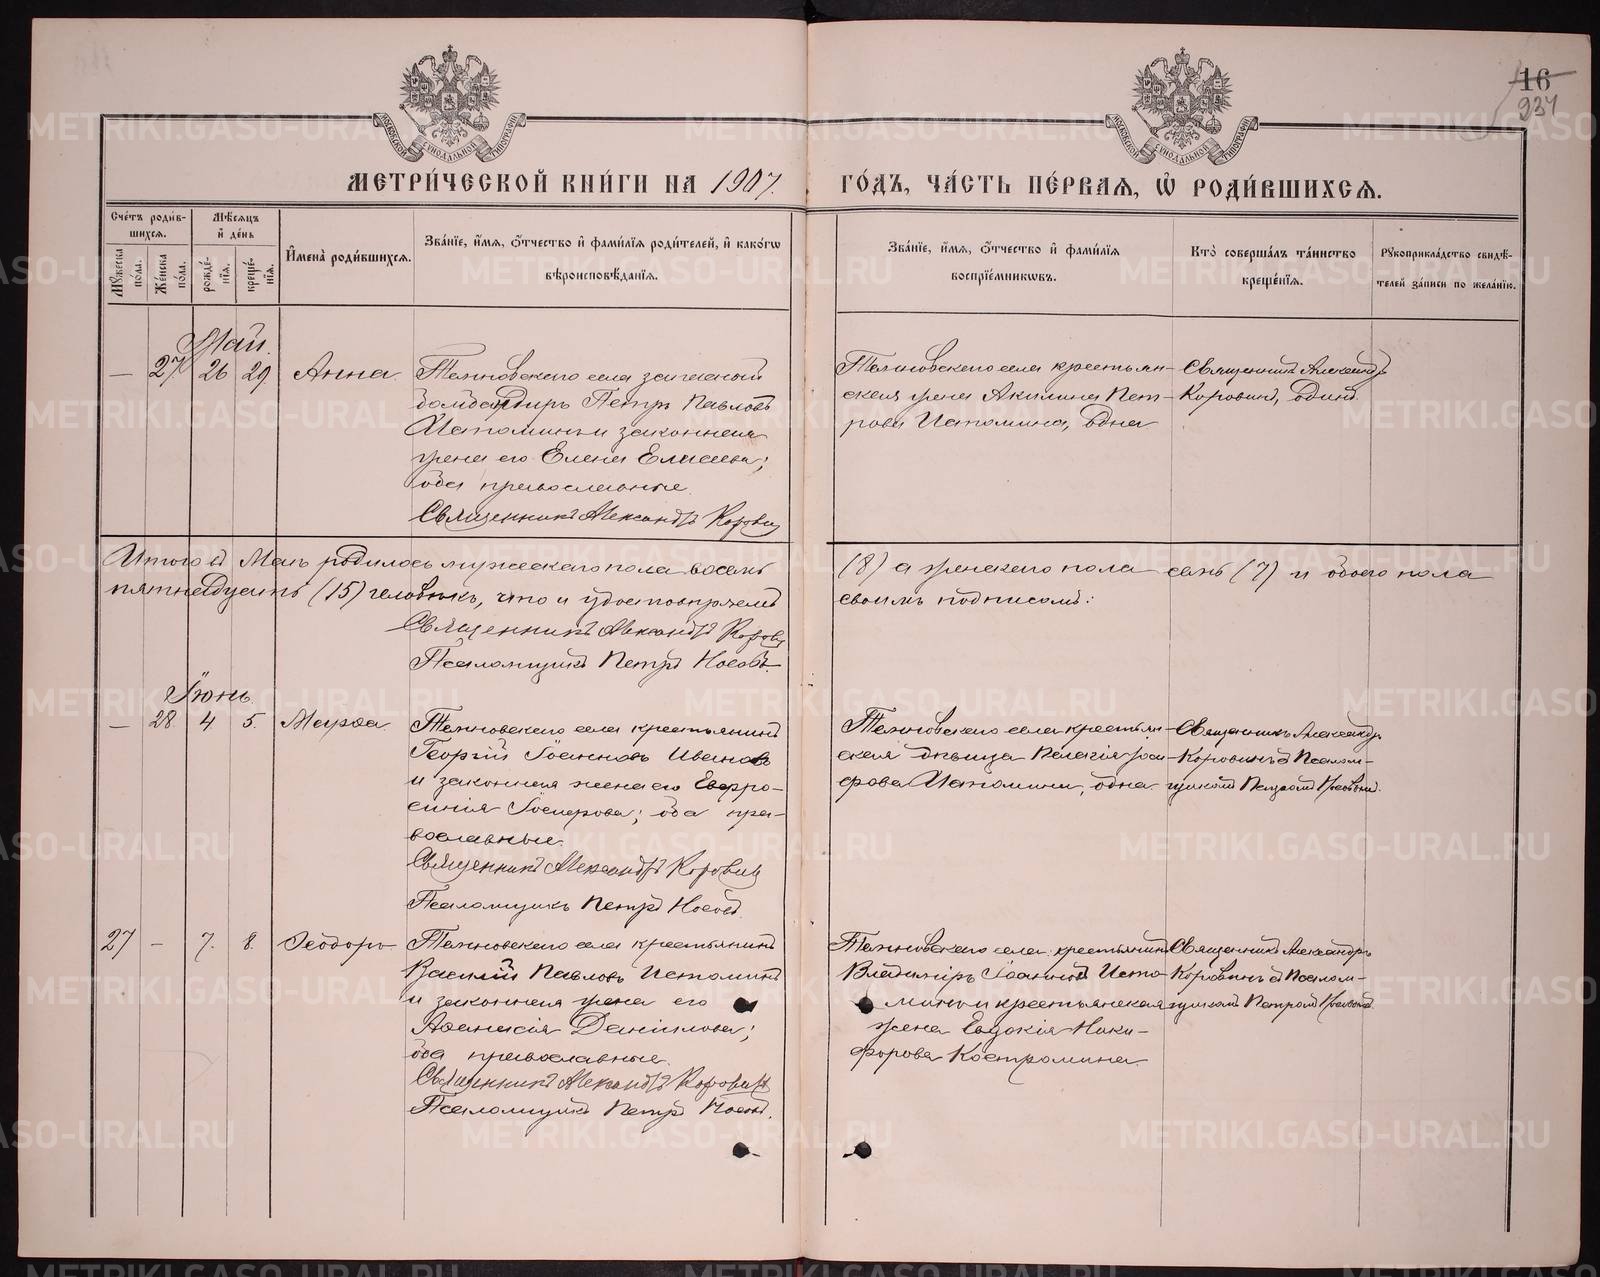 16
937
МОСКОВСКОЙ СѴНОДАЛЬНОЙ ТИПОГРАФІИ
МОСКОВСКОЙ СѴНОДАЛЬНОЙ ТИПОГРАФІИ
МЕТРИ́ЧЕСКОЙ КНИ́ГИ НА 1907. ГО́ДЪ, ЧА́СТЬ ПЕ́РВАЯ, Ѡ РОДИ́ВШИХСЯ.
Сче́тъ роди́в-
шихся.
Мꙋжеска по́ла.
Же́нска по́ла.
Мѣ́сяцъ
и́ де́нь
рожде́-
нїя.
креще́-
нїя.
И́мена̀ роди́вшихся.
Зва́нїе, и́мя, ѻ́тчество и́ фами́лїя роди́телей, и́ како́гѡ
вѣроисповѣ́данїя.
Зва́нїе, и́мя, ѻ́тчество и́ фами́лїя
воспрїе́мникѡвъ.
Кто̀ соверша́лъ та́инство
креще́нїя.
Рꙋкоприкла́дство свидѣ́-
телей за́писи по жела́нїю.
Май.
— 27 26 29 Анна.
села запасный
бомбардиръ Петръ Павловъ
Истоминъ и законная
жена его Елена Елисеева;
оба православные.
Священникъ Александръ Коровин
села крестьян-
ская жена Акилина Пет-
рова Истомина, одна
Священникъ Александръ
Коровинъ, одинъ.
Итого въ Маѣ родилось мужескаго пола восемь (8) а женскаго пола семь (7) и обоего пола
пятнадцать (15) человѣкъ, что и удостовѣряемъ своимъ подписомъ:
Священникъ Александръ Коровин
Псаломщикъ Петръ Носовъ.
Іюнь.
— 28. 4. 5. Марѳа.
села крестьянинъ
Георгій Іоанновъ Ивановъ
и законная жена его Евфро-
синія; оба пра-
вославные.
Священникъ Александръ Коровин
Псаломщикъ Петръ Носовъ.
села крестьян-
ская дѣвица Пелагія
Истомина, одна
Священникъ Александръ
Коровинъ съ Псалом-
щикомъ Петромъ Носовымъ.
27 — 7. 8. Ѳеодоръ
села крестьянинъ
Василій Павловъ Истоминъ
и законная жена его
Аѳанасія Даніилова;
оба православные.
Священникъ Александръ Коровин
Псаломщикъ Петръ Носовъ.
села крестьянинъ
Владиміръ Іоанновъ Исто-
минъ и крестьянская
жена Евдокія Ники-
форова Костромина.
Священникъ Александръ
Коровинъ съ Псалом-
щикомъ Петромъ Носовымъ.
METRIKI.GASO-URAL.RU